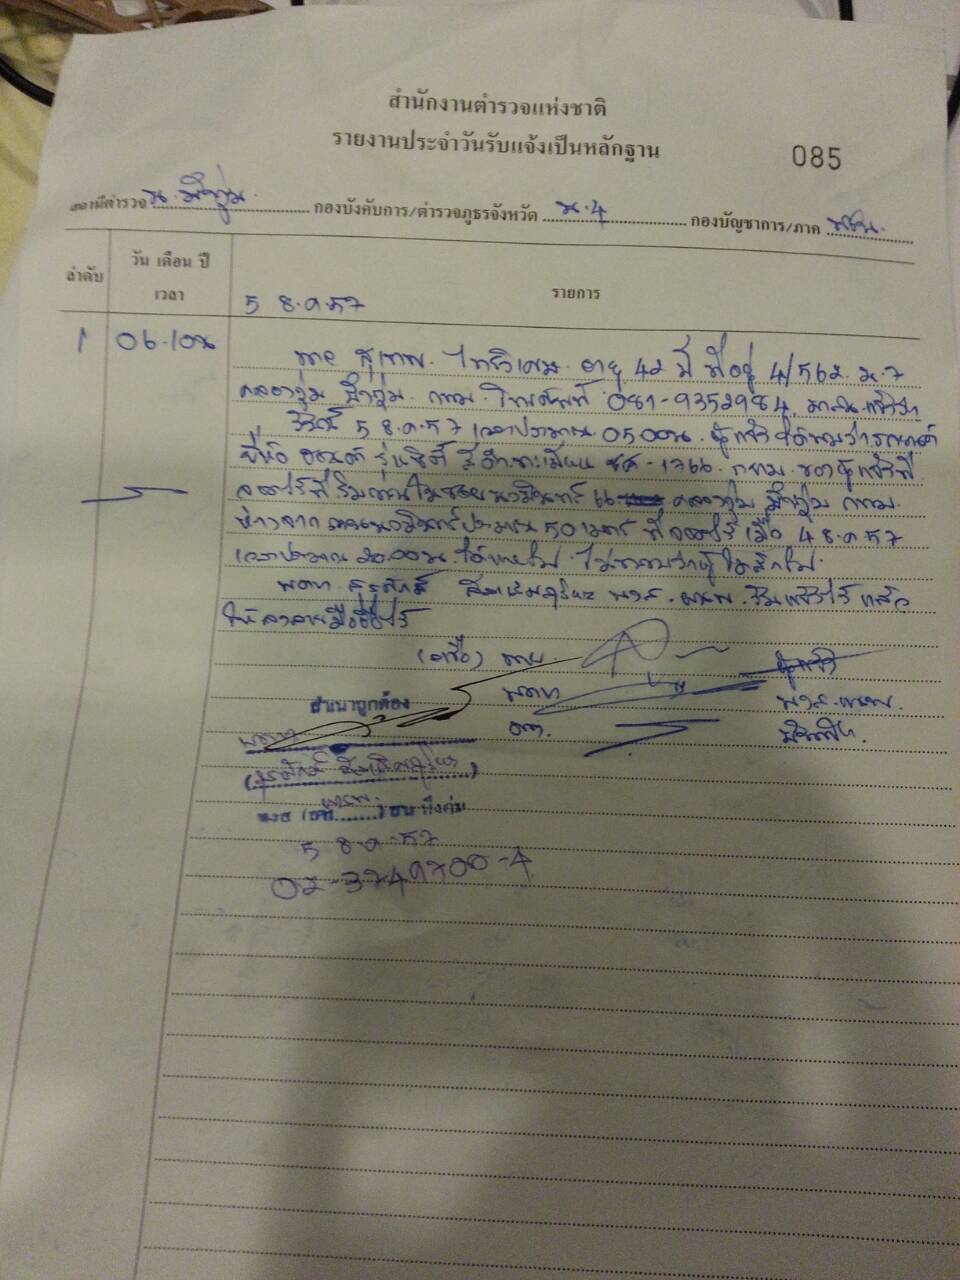 สำนักงานตำรวจแห่งชาติ
รายงานประจำวันรับแจ้งเป็นหลักฐาน
085
สถานีตำรวจ น. บึงกุ่ม กองบังคับการ/ตำรวจภูธรจังหวัด น.4 กองบัญชาการ/ภาค บชน.
ลำดับ
วัน เดือน ปี
เวลา
รายการ
5 ธ.ค.57
1 06.10น
นาย สุเทพ อายุ 42 ปี ที่อยู่ 4/562 ม.7
คลองกุ่ม บึงกุ่ม กทม. โทรศัพท์ 081-9352984 มาแจ้งว่า
วันนี้ 5 ธ.ค.57 เวลาประมาณ 05.00น. ผู้แจ้งได้พบว่ารถยนต์
ยี่ห้อ ฮอนด้า รุ่นซิตี้ สีดำ ทะเบียน ชศ-1766 กทม. ของผู้แจ้งที่
จอดไว้ที่ริมถนนในซอยนวมินทร์ 66 คลองกุ่ม บึงกุ่ม กทม.
ห่างจากถนนนวมินทร์ประมาณ 50 เมตร ที่จอดไว้เมื่อ 4 ธ.ค.57
เวลาประมาณ 20.00น. ได้หายไป ไม่ทราบว่าผู้ใดลักไป
พ.ต.ท. สุรศักดิ์ พงส. รับแจ้งไว้ แล้ว
ให้ลงลายมือชื่อไว้
(ลงชื่อ) นาย ผู้แจ้ง
พ.ต.ท. พงส.
สำเนาถูกต้อง
พ.ต.ท.
(สุรศักดิ์)
5 ธ.ค.57
02-3749700-4